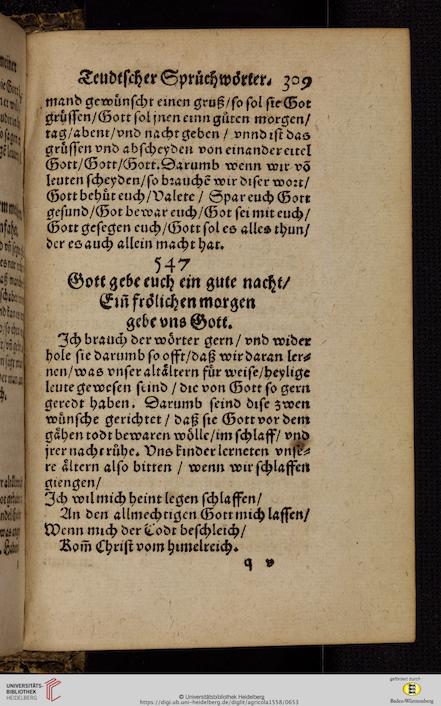 Teudtscher Sprüchwörter. 309
mand gewünscht einen gruß/so sol sie Got
grüssen/Gott sol jnen einn güten morgen/
tag/abent/vnd nacht geben / vnnd ist das
grüssen vnd abscheyden von einander eitel
Gott/Gott/Gott. Darumb wenn wir võ
leuten scheyden/so brauchẽ wir diser wort/
Gott behüt euch/Valete / Spar euch Gott
gesund/Got bewar euch/Got sei mit euch/
Gott gesegen euch/Gott sol es alles thun/
der es auch allein macht hat.
547
Gott gebe euch ein gute nacht/
Eiñ frölichen morgen
gebe vns Gott.
Jch brauch der wörter gern / vnd wider
hole sie darumb so offt/daß wir daran ler⸗
nen/was vnser altältern für weise/heylige
leute gewesen seind / die von Gott so gern
geredt haben. Darumb seind dise zwen
wünsche gerichtet / daß sie Gott vor dem
gähen todt bewaren wölle/im schlaff/ vnd
jrer nacht rühe. Vns kinder lerneten vnse⸗
re ältern also bitten / wenn wir schlaffen
giengen/
Jch wil mich heint legen schlaffen/
An den allmechtigen Gott mich lassen/
Wenn mich der Todt beschleich/
Kom̃ Christ vom himelreich.
q v
UNIVERSITÄTS-
BIBLIOTHEK
HEIDELBERG
© Universitätsbibliothek Heidelberg
https://digi.ub.uni-heidelberg.de/diglit/agricola1558/0653
gefördert durch
Baden-Württemberg